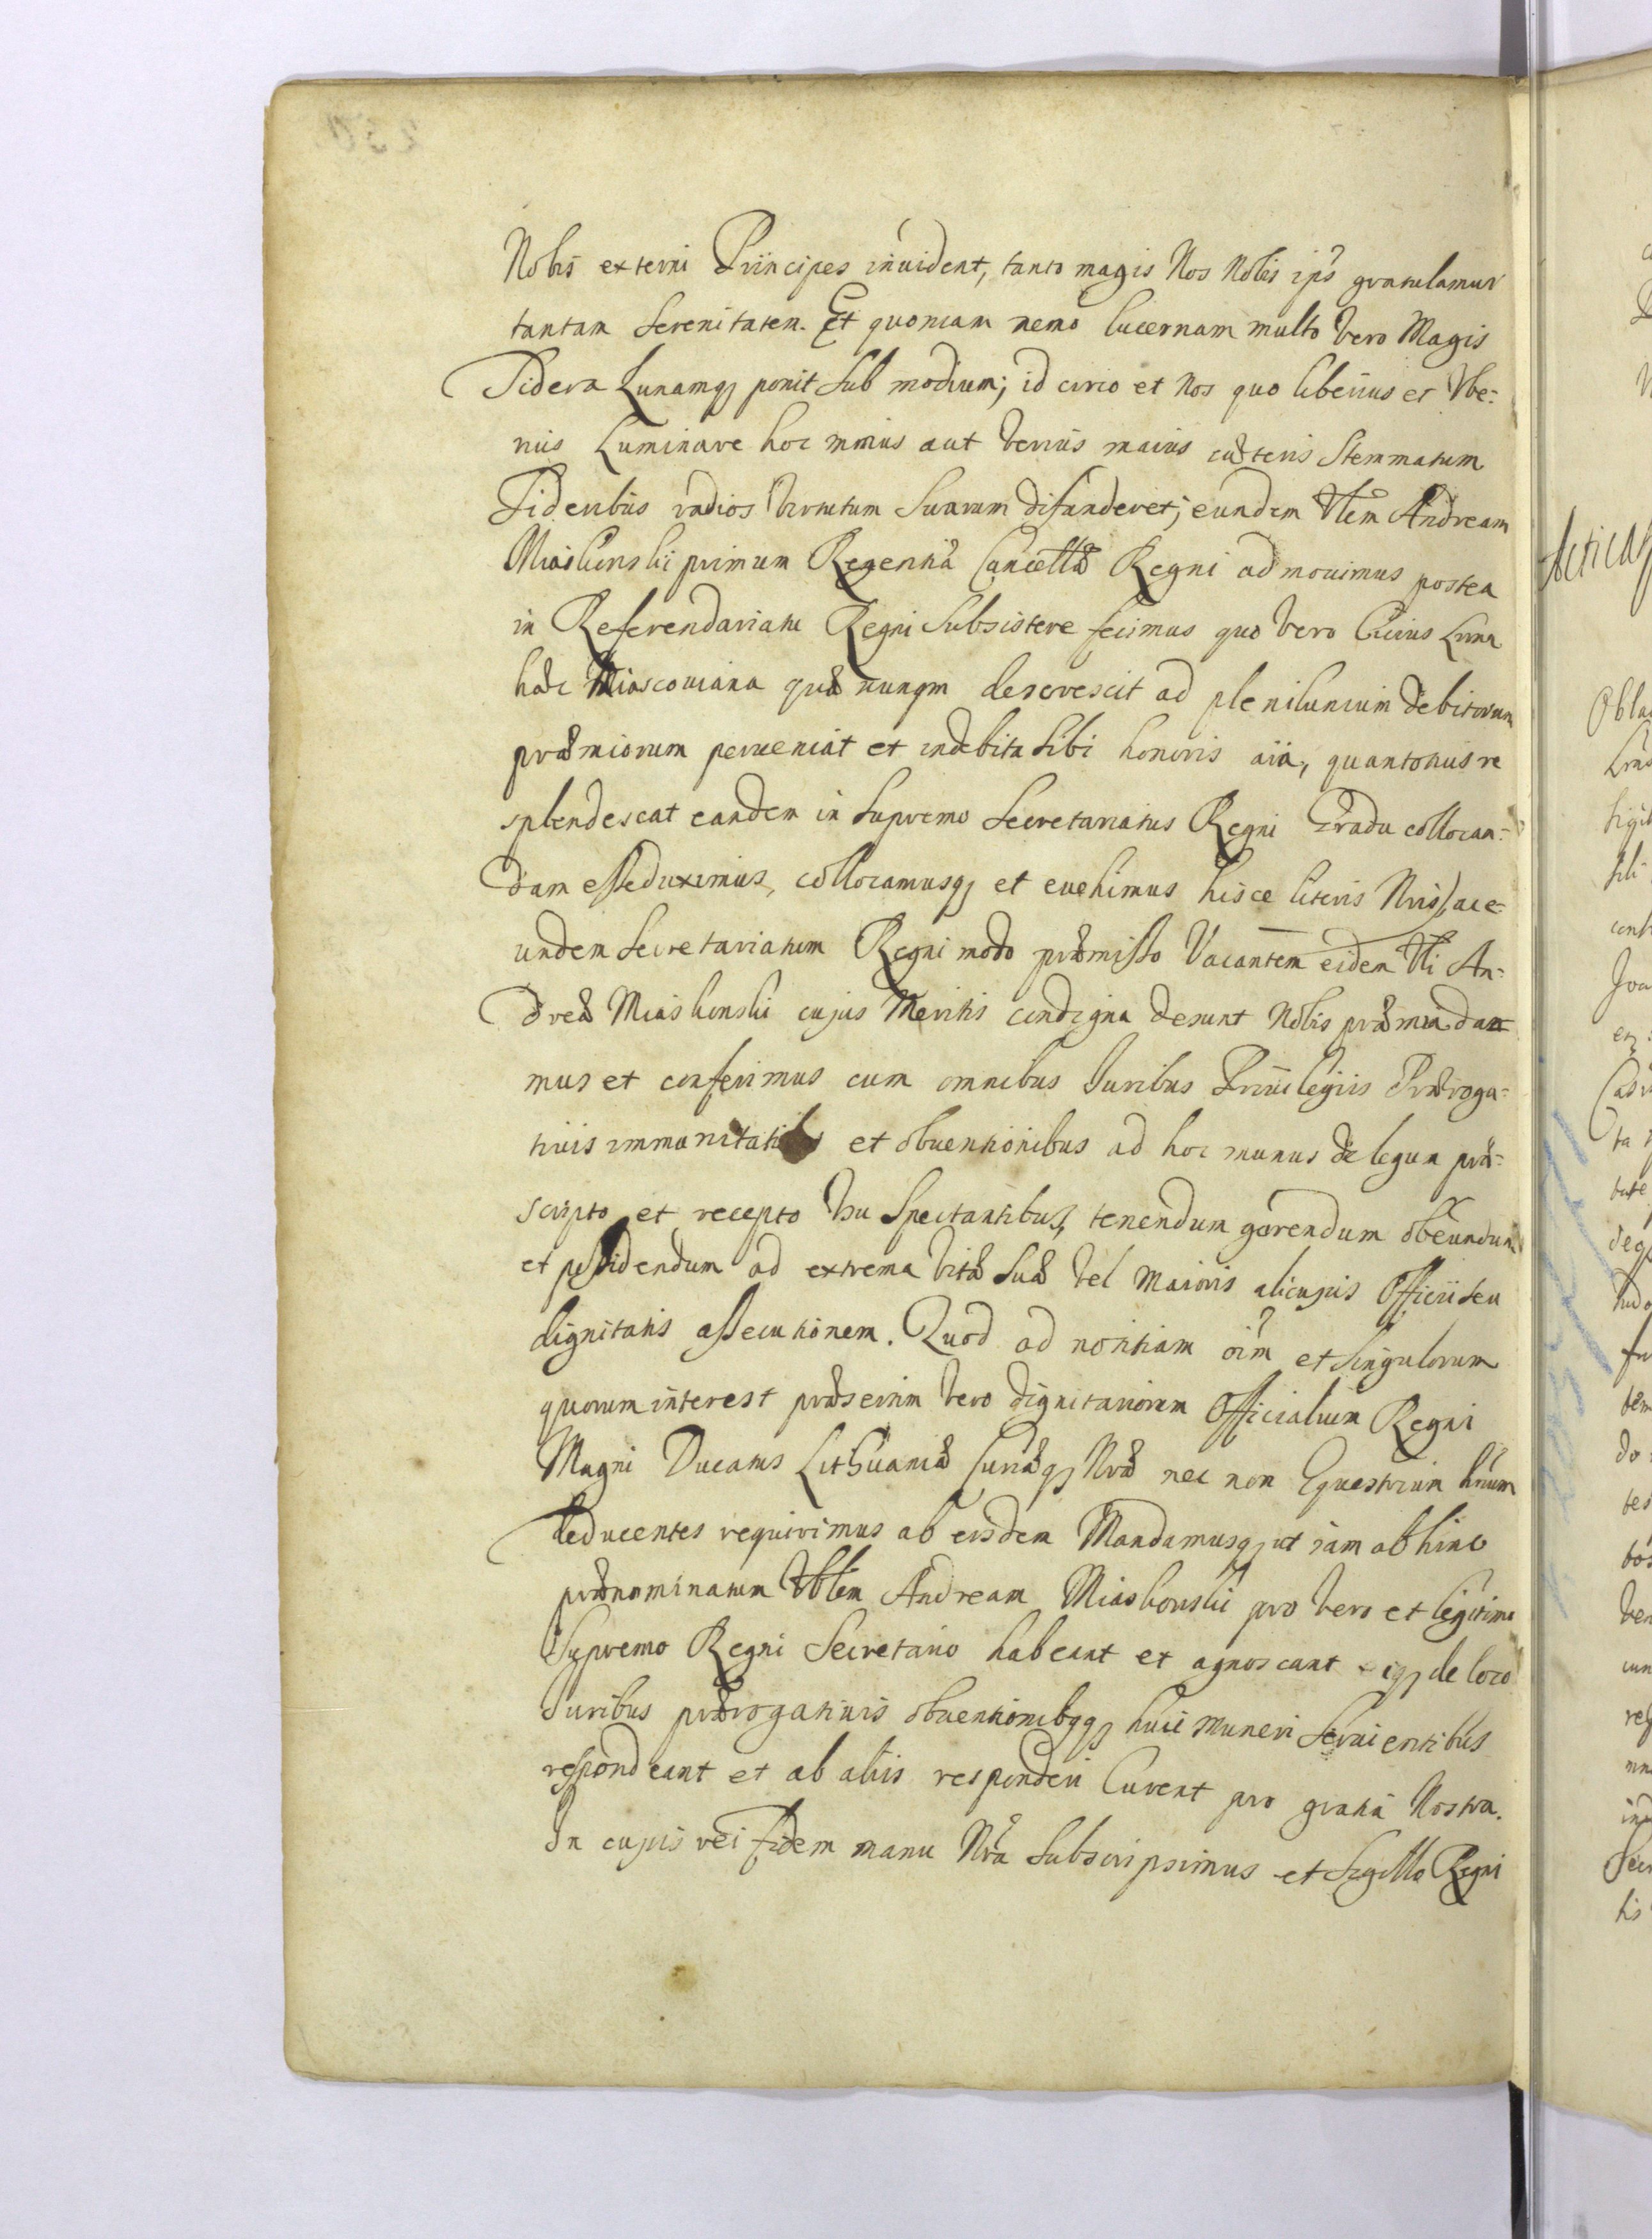 Nobis externi Principes inuident, tanto magis Nos Nobis ips gratulamur
tantam Serenitatem. Et quoniam nemo lucernam multo vero Magis
Sidera Lunamq ponit sub modium; id circo et Nos quo liberius et Vbe-
rius Luminare hoc minus aut verius maius cæteris Stemmatum
Sideribus radios virtutum Suarum difunderet; eundem Vlem Andream
Miaskonski primum Regentiæ Cancellæ Regni admouimus postea
in Referendariatu Regni Subsistere fecimus quo vero Citius Luna
hæc Miascoviana quæ nunqm descrescit ad plenilunium debitorum
præmiorum perueniat et in debita sibi honoris aia, quanto tius re
splendescat eandem in Supremo Secretariatus Regni Gradu collocan-
dam esse duximus, collocamusq et euehimus hisce literis Nris, ac e-
undem Secretariatum Regni modo præmisso Vacantem eidem Vli An-
dreæ Miaskonski cujus Meritis condigna desunt Nobis præmia da
mus et conferimus cum omnibus Juribus Priuilegiis Præroga-
tiuis immunitatibus et obuentionibus ad hoc munus de legum præ-
scripto et recepto vsu Spectantibus, tenendum gerendum obeundum
et possidendum ad extrema vitæ Suæ vel Maioris alicujus Officii seu
dignitatis assecutionem. Quod ad notitiam oim et Singulorum
quorum interest præsertim vero dignitariorum Officialium Regni
Magni Ducatus Lithuaniæ Curiæq Nræ nec non Equestrium hnum
deducentes requirimus ab eisdem Mandamusq ut iam abhinc
prænominatum Vblem Andream Miaskonski pro vero et legitimo
Supremo Regni Secretario habeant et agnoscant eiq de loco
Juribus prærogatiuis obuentionibqq huic muneri Seruientibus
respondeant et ab aliis responderi Curent pro gratia Nostra.
In cujus rei fidem manu Nra Subscripsimus et Sigillo Regni